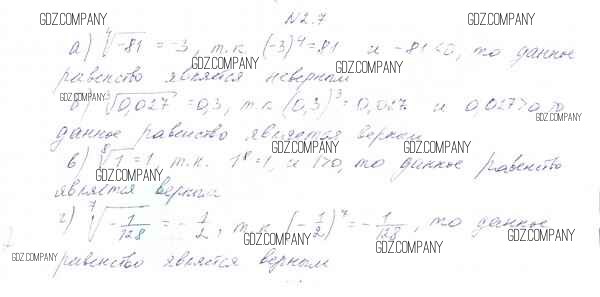 GDZ.COMPANY №2.7 GDZ.COMPANY
а) ⁴√-81 = -3, т.к. (-3)⁴ = 81 и -81<0, то данное
GDZ.COMPANY GDZ.COMPANY
равенство является неверным
GDZ.COMPANY
б) ³√0,027 = 0,3, т.к (0,3)³ = 0,027 и 0,027>0, то
GDZ.COMPANY
данное равенство является верным
GDZ.COMPANY GDZ.COMPANY
в) ⁸√1 = 1, т.к. 1⁸ = 1, и 1>0, то данное равенство
GDZ.COMPANY GDZ.COMPANY
является верным
г) ⁷√-1/128 = -1/2, т.к. (-1/2)⁷ = -1/128, то данное
GDZ.COMPANY GDZ.COMPANY GDZ.COMPANY
GDZ.COMPANY GDZ.COMPANY
равенство является верным